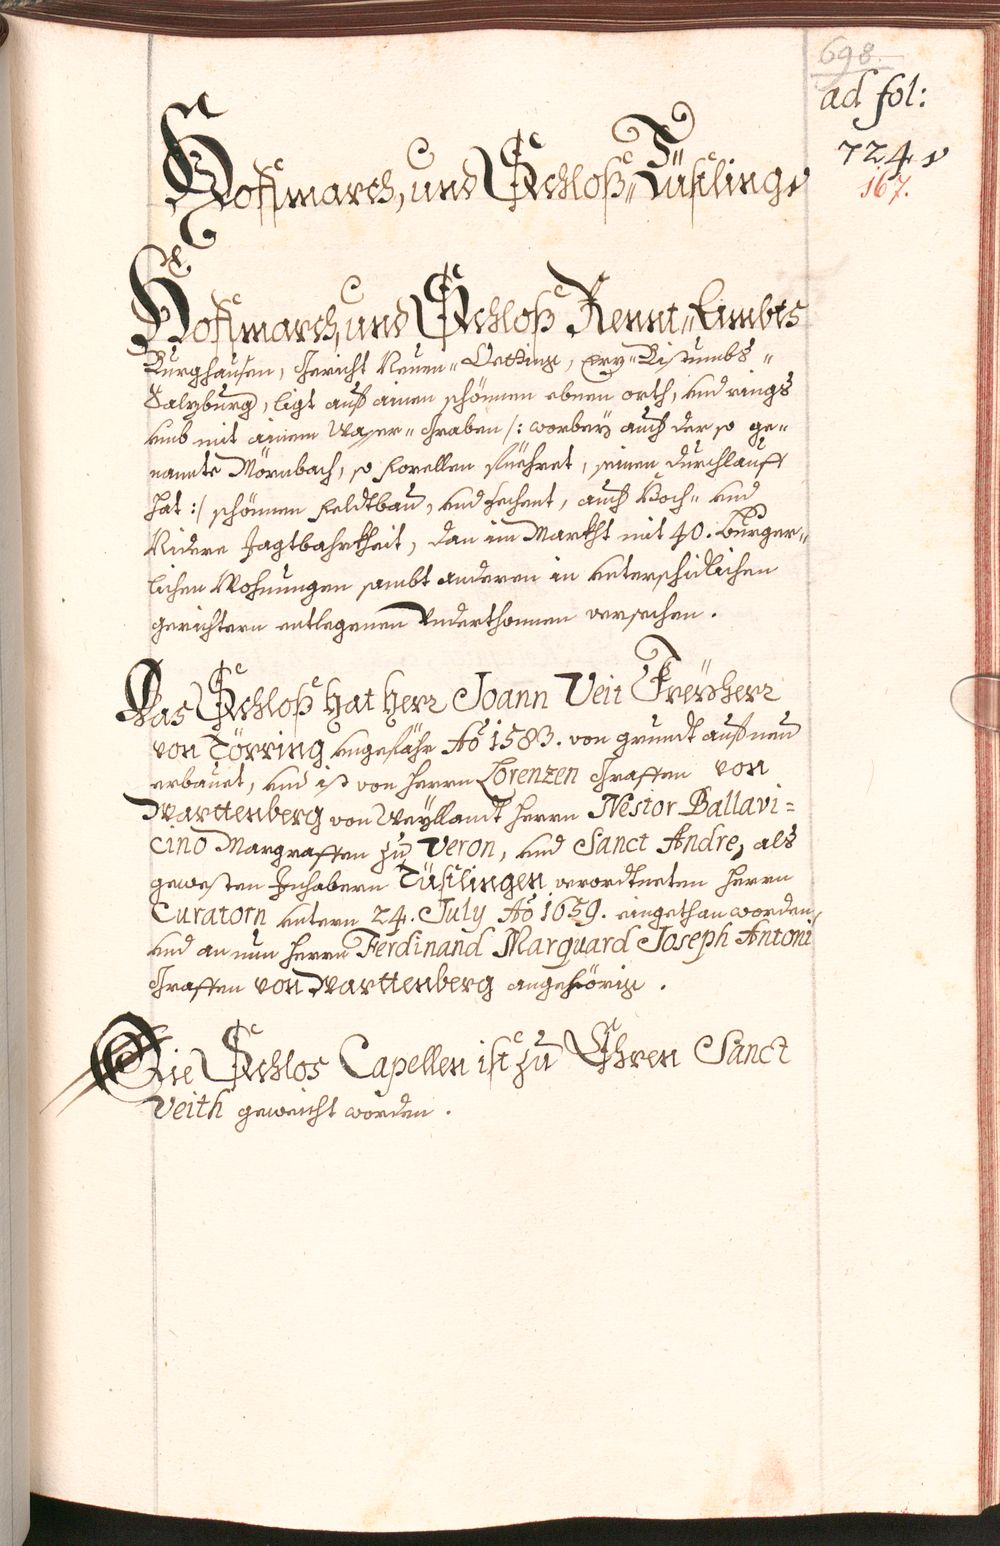 698.
ad fol:
724.
167.
Hoffmarch, und Schloß Tüßling
Hoffmarch, und Schloß Rennt„Ambts
Burghausen, Gericht Neuen„Oetting, Erz„Bistumbs„
Salzburg, ligt auß ainen schönnen ebnen orth, und rings
umb mit ainem Wasser„Graben /: worbey auch der so ge„
nannte Mörnbach, so Forellen füehret, seinen durchlauff
hat :/ schönnen Feldtbau, und Zechent, auch Hoch„ und
Nidere Jagtbahrkheit, dan im Markht mit 40. Burger„
lichen Wohnungen sambt anderen in unterschidlichen
gerichtern entlegenen Underthonnen versechen.
Das Schloß hat Herr Joann Veit Freÿherr
von Törring ungefähr Aõ 1583. von grundt auß neu
erbauet, und ist von Herrn Lorenzen Graffen von
Warttenberg von Weÿllandt Herrn Nestor Ballavi=
cino Margraffen zu Veron, und Sanct Andre, als
gewesten Inhabern Tüßlingen verordtneten Herrn
Curatorn untern 24. July Aõ 1659. eingethan worden,
und an nun Herrn Ferdinand Marquard Joseph Antoni
Graffen von Warttenberg angehörig.
Die Schlos Capellen ist zu Ehren Sanct
Veith geweicht worden.